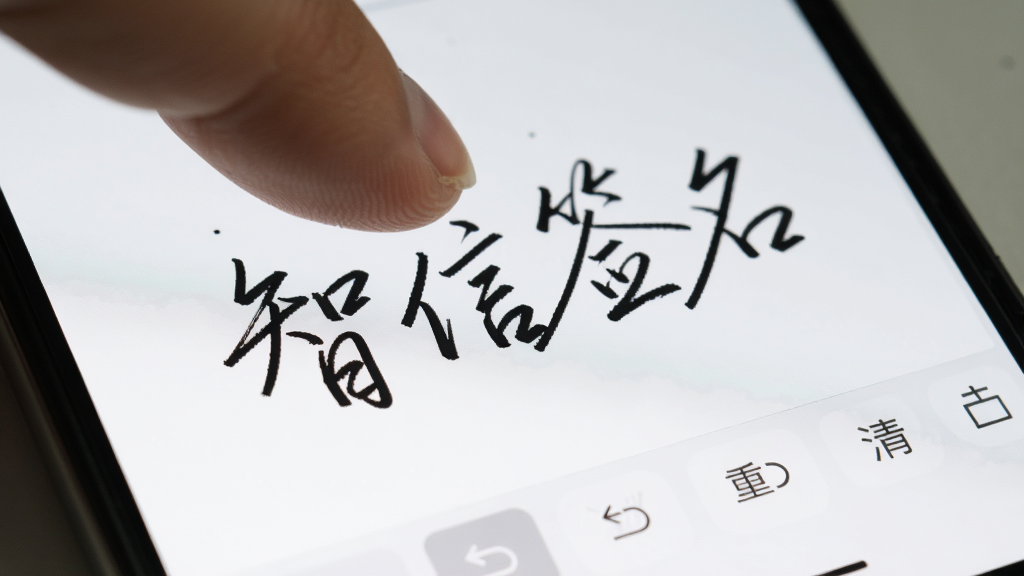 智信签名
重
清
古